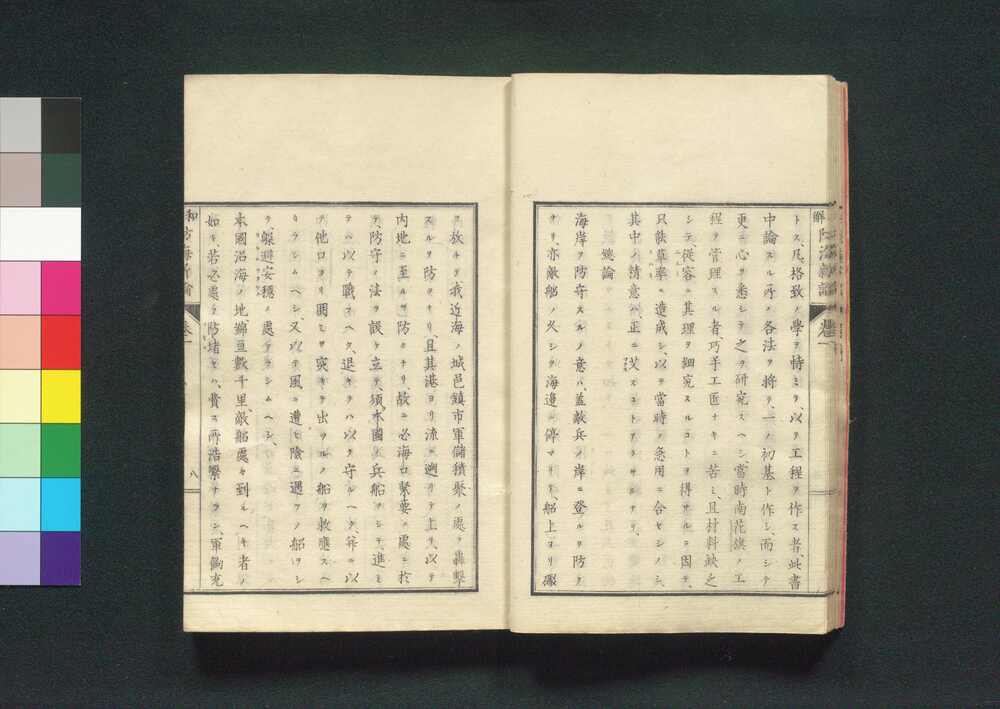 解 防海新論 卷一
トス、凡格致ノ學ヲ恃ミテ、以テ工程ヲ作ス者、此書
中論スル所ノ各法ヲ將テ、一ノ初基ト作シ、而シテ
更ニ心ヲ悉シテ之ヲ研究スヘシ、當時南花旗ノ工
程ヲ管理スル者、巧手工匠ナキニ苦ミ、且材料缺乏
シテ、從容ニ其理ヲ細究スルコトヲ得サルニ因テ、
只能草率ニ造成シ、以テ當時ノ急用ニ合セシノミ、
其中ノ精意ハ、正ニ少カラサルナリ、
總論
海岸ヲ防守スルノ意ハ、蓋敵兵ノ岸ニ登ルヲ防ク
ナリ、亦敵船ノ久シク海邊ニ停マリテ、船上ヨリ礮
ヲ放チテ我近海ノ城邑鎮市軍儲積聚ノ處ヲ轟撃
スルヲ防クナリ、且其港ヨリ流ニ遡リテ上リ、以テ
内地ニ至ルヲ防クナリ、故ニ必海口緊要ノ處ニ於
テ、防守ノ法ヲ設ケ立テ、須本國ノ兵船ヲシテ、進ミ
テハ以テ戰フヘク、退キテハ以テ守ルヘク、并ニ以
テ他口ヨリ圍ミヲ突キテ出ツルノ船ヲ救應スヘ
カラシムヘシ、又以テ風ニ遭ヒ險ニ遇フノ船ヲシ
テ、躱避安穩ノ處アラシムヘシ、
本國沿海ノ地、綿亘數千里、敵船處々到ルヘキ者ノ
如キ、若必處々防堵セハ、費ス所浩繁ナラン、軍餉充
和 防海新論 卷一 八